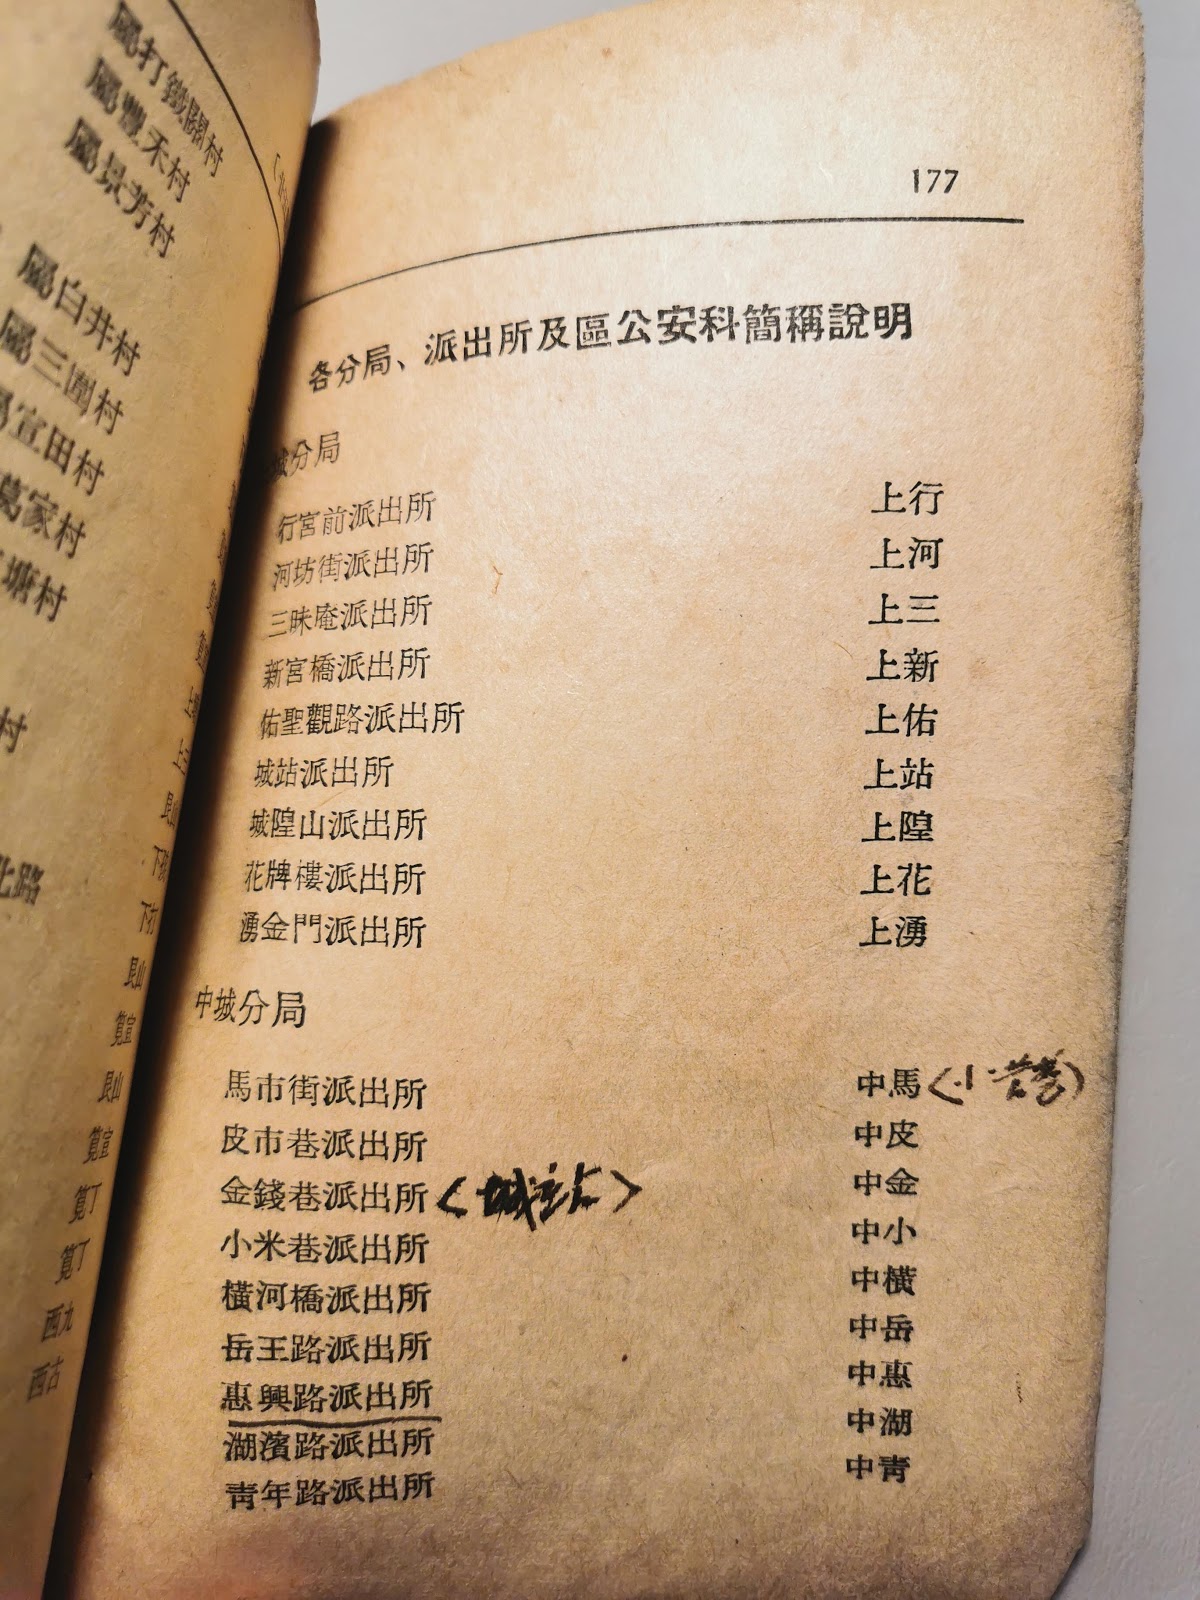 屬打鐵關村
屬豐禾村
屬景芳村
屬白井村
屬三圍村
宣田村
葛家村
塘村
村
北路
177
各分局、派出所及區公安科簡稱說明
城分局
行宮前派出所 上行
河坊街派出所 上河
三昧庵派出所 上三
新宮橋派出所 上新
佑聖觀路派出所 上佑
城站派出所 上站
城隍山派出所 上隍
花牌樓派出所 上花
湧金門派出所 上湧
中城分局
馬市街派出所 中馬
皮市巷派出所 中皮
金錢巷派出所(城站) 中金
小米巷派出所 中小
橫河橋派出所 中橫
岳王路派出所 中岳
惠興路派出所 中惠
湖濱路派出所 中湖
青年路派出所 中青